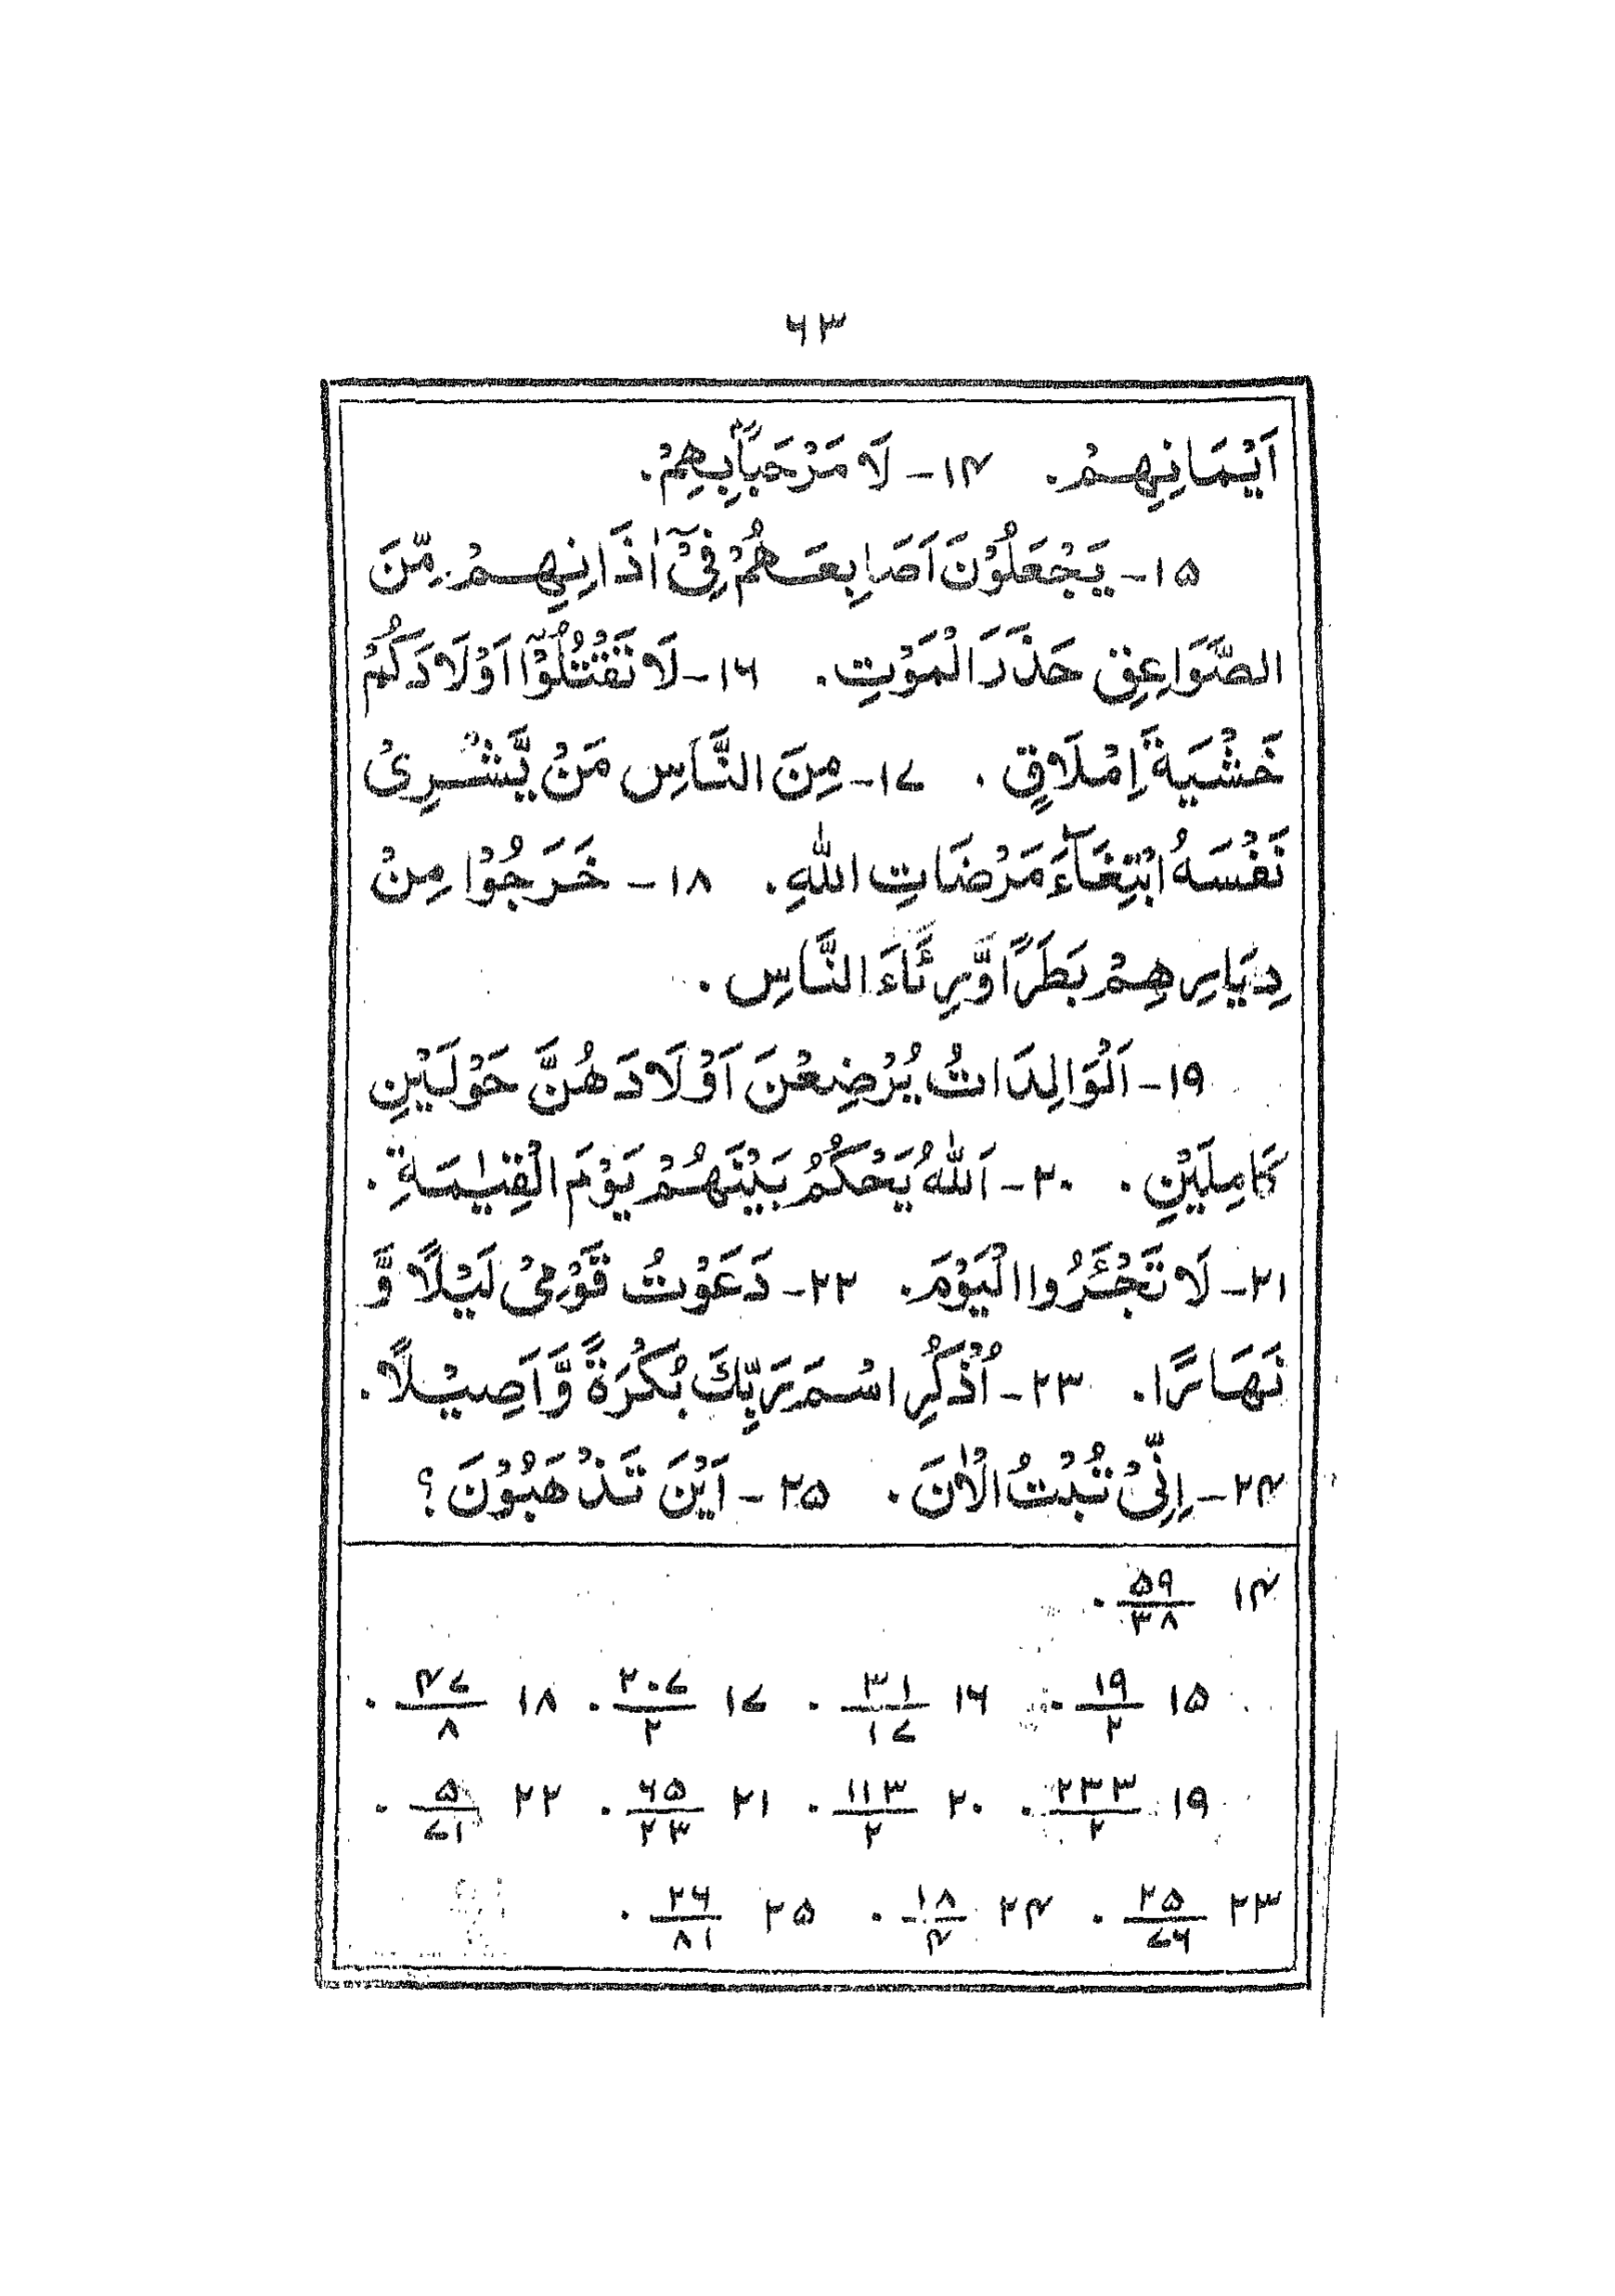 ۶۳
اَیْمَانِهِمْ۔ ۱۴- لَا مَرْحَبًۢا بِهِمْ۔
۱۵- یَجْعَلُوْنَ اَصَابِعَهُمْ فِیْٓ اٰذَانِهِمْ مِّنَ
الصَّوَاعِقِ حَذَرَ الْمَوْتِ۔ ۱۶- لَا تَقْتُلُوْٓا اَوْلَادَكُمْ
خَشْیَةَ اِمْلَاقٍ۔ ۱۷- مِنَ النَّاسِ مَنْ یَّشْرِیْ
نَفْسَهُ ابْتِغَآءَ مَرْضَاتِ اللّٰهِ۔ ۱۸- خَرَجُوْا مِنْ
دِیَارِهِمْ بَطَرًا وَّرِئَآءَ النَّاسِ۔
۱۹- اَلْوَالِدَاتُ یُرْضِعْنَ اَوْلَادَهُنَّ حَوْلَیْنِ
كَامِلَیْنِ۔ ۲۰- اَللّٰهُ یَحْكُمُ بَیْنَهُمْ یَوْمَ الْقِیٰمَةِ۔
۲۱- لَا تَجْئَرُوا الْیَوْمَ۔ ۲۲- دَعَوْتُ قَوْمِیْ لَیْلًا وَّ
نَهَارًا۔ ۲۳- اُذْكُرِ اسْمَ رَبِّكَ بُكْرَةً وَّاَصِیْلًا۔
۲۴- اِنِّیْ تُبْتُ الْاٰنَ۔ ۲۵- اَیْنَ تَذْهَبُوْنَ؟
۱۴ ۵۹/۳۸۔
۱۵ ۱۹/۲۔ ۱۶ ۳۱/۱۷۔ ۱۷ ۲۰۷/۲۔ ۱۸ ۴۷/۸۔
۱۹ ۲۳۳/۲۔ ۲۰ ۱۱۳/۲۔ ۲۱ ۶۵/۲۳۔ ۲۲ ۵/۷۱۔
۲۳ ۲۵/۷۶۔ ۲۴ ۱۸/۴۔ ۲۵ ۲۶/۸۱۔